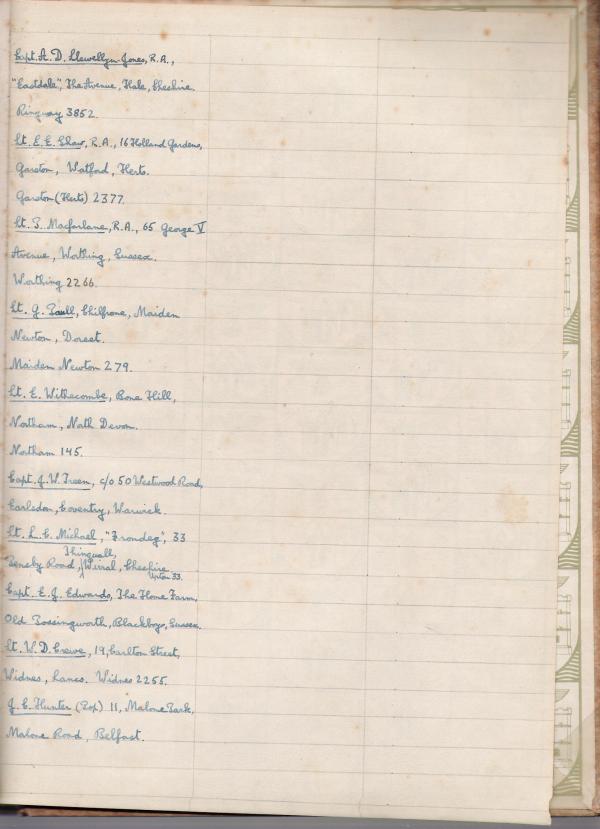 Capt. A. D. Llewellyn-Jones, R.A.,
"Eastdale", The Avenue, Hale, Cheshire.
Ringway 3852.
Lt. E. E. Shaw, R.A., 16 Holland Gardens,
Garston, Watford, Herts.
Garston (Herts) 2377.
Lt. P. Macfarlane, R.A., 65 George V
Avenue, Worthing, Sussex.
Worthing 2266.
Lt. G. Paull, Chilfrome, Maiden
Newton, Dorset.
Maiden Newton 279.
Lt. E. Withecombe, Bone Hill,
Northam, North Devon.
Northam 145.
Capt. J. W. Treen, c/o 50 Westwood Road,
Earlsdon, Coventry, Warwick.
Lt. L. C. Michael, "Frondeg", 33
Thingwall,
Road, Wirral, Cheshire
Upton 33.
Capt. E. J. Edwards, The Home Farm,
Old Possingworth, Blackboys, Sussex.
Lt. W. D. Crewe, 19, Carlton Street,
Widnes, Lancs. Widnes 2255.
J. C. Hunter (Pop) 11, Malone Park,
Malone Road, Belfast.